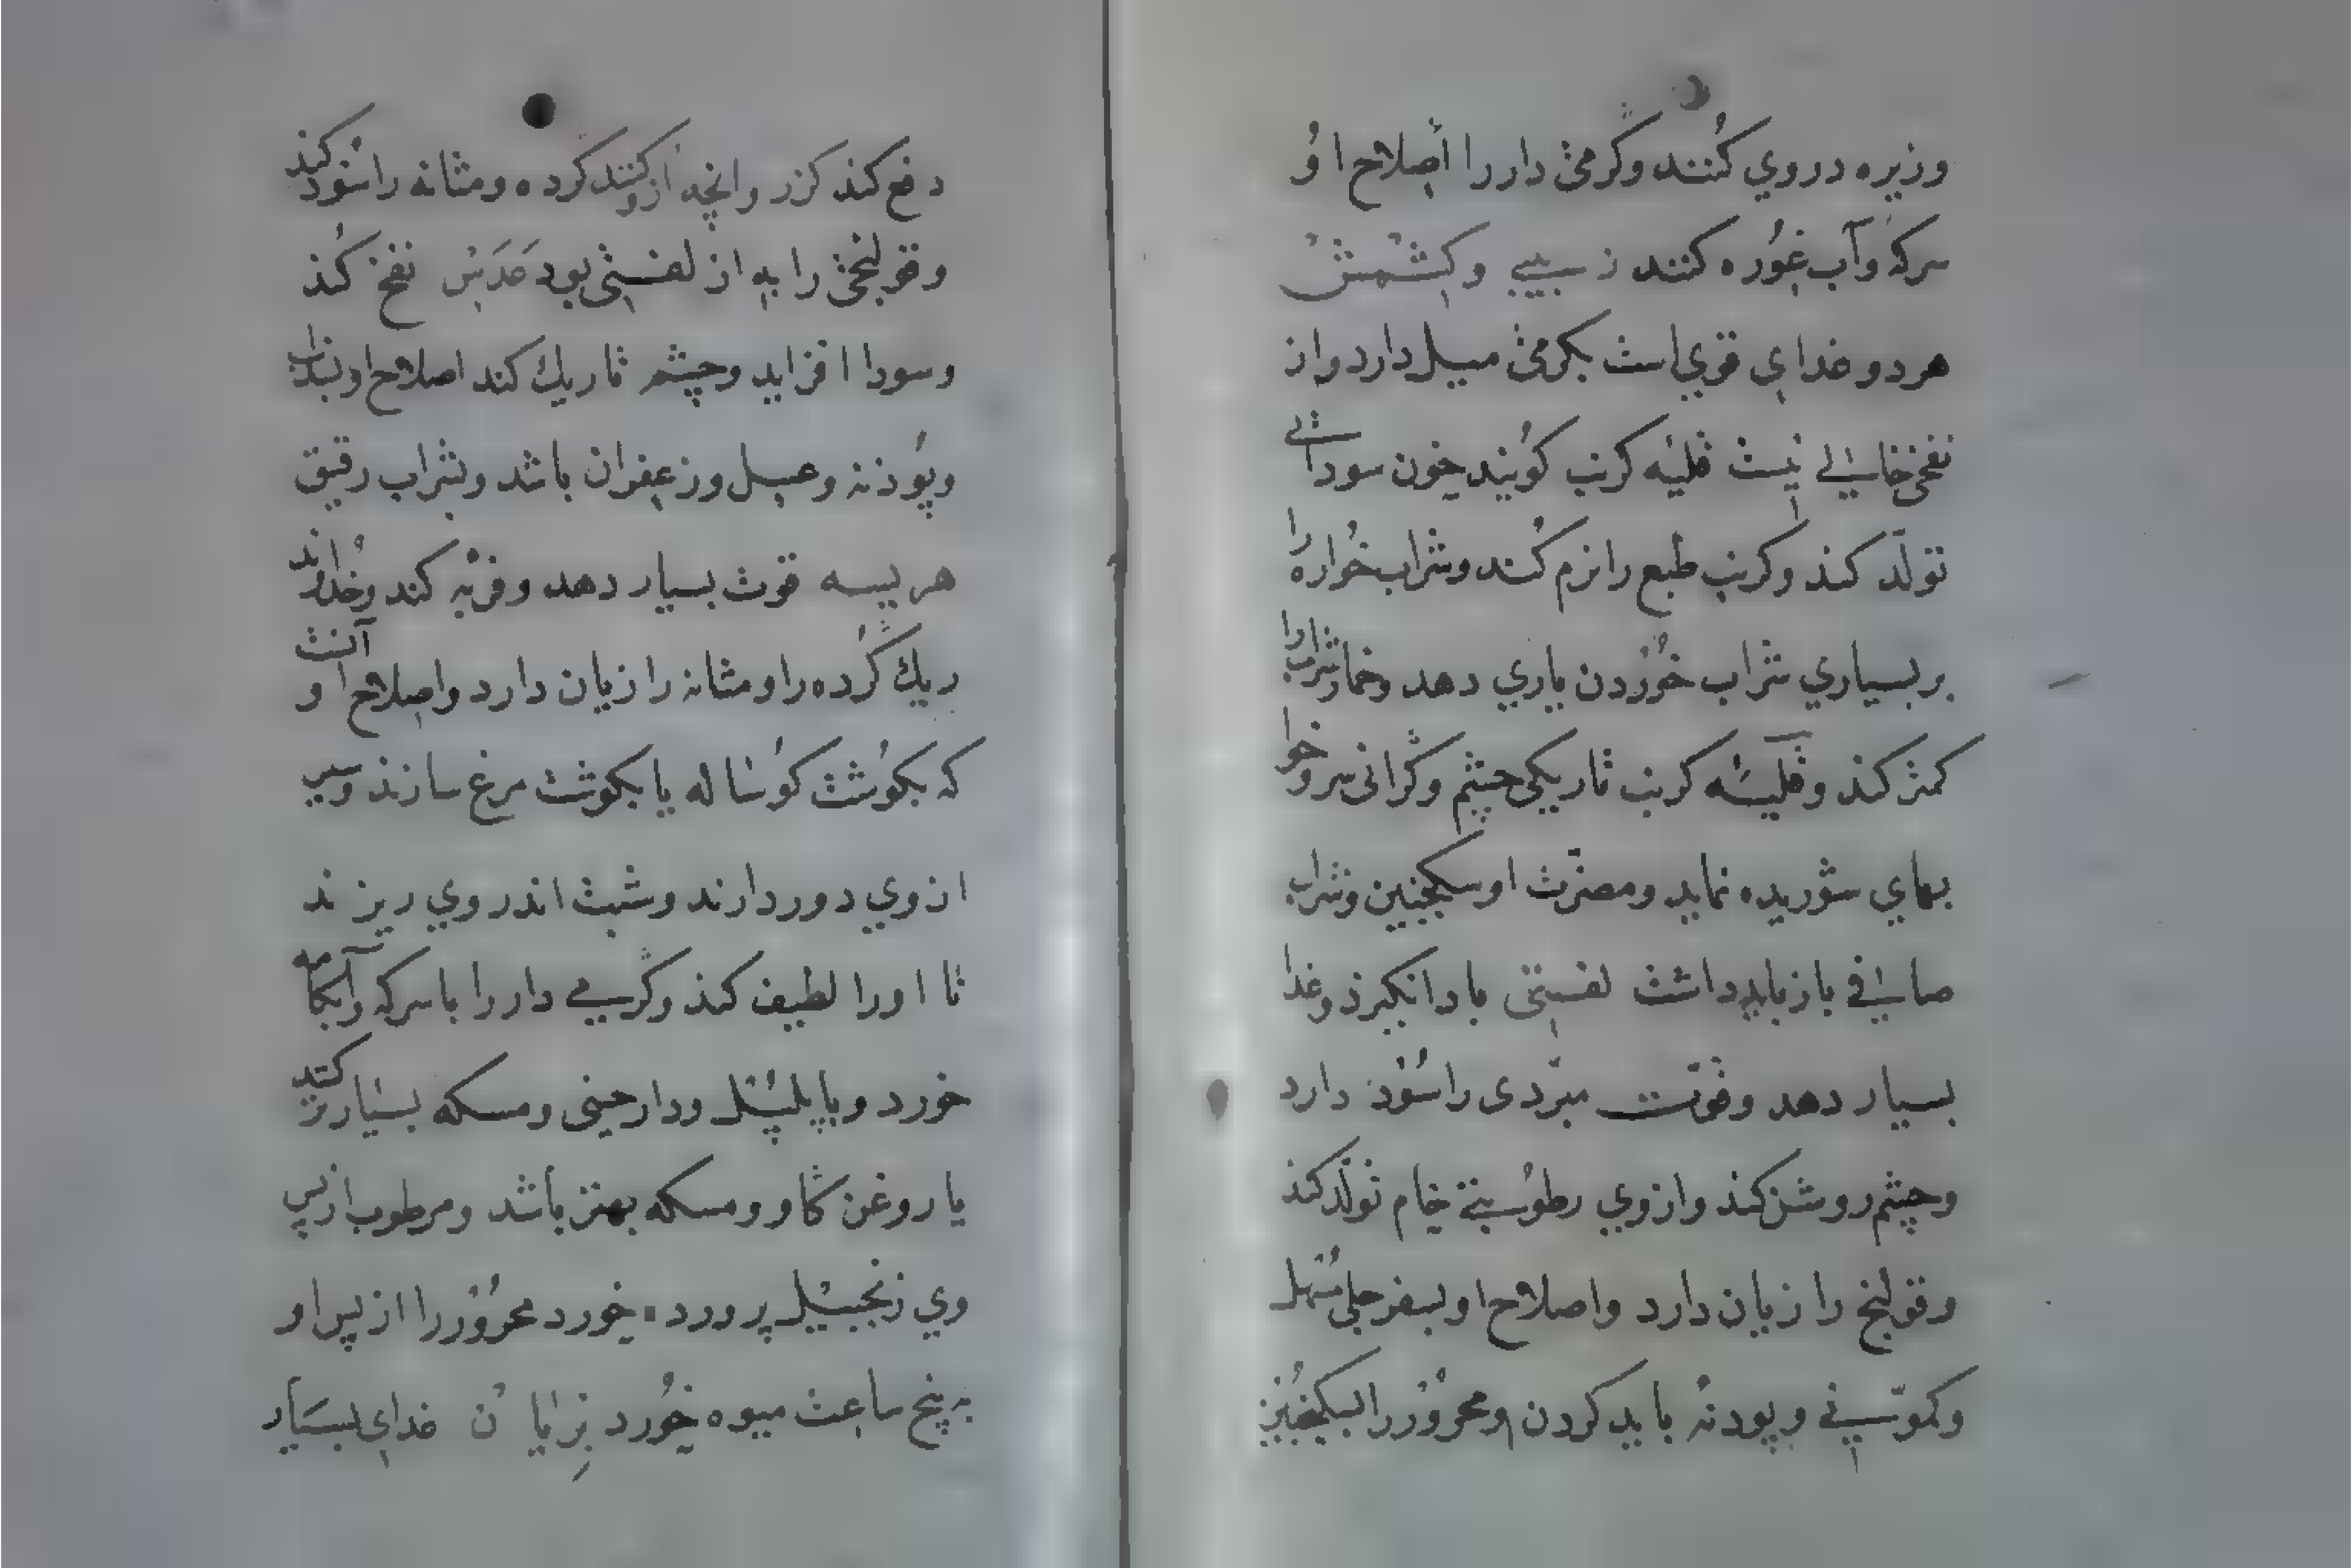 وزیره در وي کُنند وکَرمیْ دار را اصلاح اوُ
سرکه وآب غوره کنند زبیبی وکشمش
هر دو غداي قوي است بکرمیْ میل دارد واز
نفخی خالی نیست قلیه کرنب کویند خون سودائی
تولّد کند وکرنب طبع را نرم کند وشراب خواره را
بر بسیاري شراب خوردن یاري دهد وخمار شراب را
کمتر کند وقلیه کرنب تاریکی چشم وکرانی سر وخوا
بهاي شوریده نماید ومضرّت او سکنجبین وشراب
صافی باز باید داشت باد انکیزد وغدا
بسیار دهد وقوّت مبرّدی را سُود دارد
وچشم روشن کند واز وي رطوبتی خام تولّد کند
وقولنج را زیان دارد واصلاح او بسفرجلی مُسهل
وکموّنی وپودنه باید کردن ومحرور را بسکنجبین
دفع کند کزر وانچه ازو کنند کرده ومثانه را سُود کند
وقولنجی را به از بود عدَس نفخ کند
وسودا افزاید وچشم تاریك کند اصلاح او بسداب
وپُودنه وعسل وزعفران باشد وبشراب رقیق
هریسه قوت بسیار دهد وفربه کند وخداوند
ریك کُرده را ومثانه را زیان دارد واصلاح او آنست
که بکوشت کوساله یا بکوشت مرغ سازند وسر
از وي دور دارند وشبت اندر وي ریزند
تا او را لطیف کند وکرمی دار را با سرکه وآبکامه
خورد وبا پلپل ودارچینی ومسکه بسیارتر کنند
یا روغن کاو ومسکه بهتر باشد ومرطوب از پس
وي زنجبیل پرورده خورد محرور را از پس او
به پنج ساعت میوه خُورد بزیان غداي بسیار